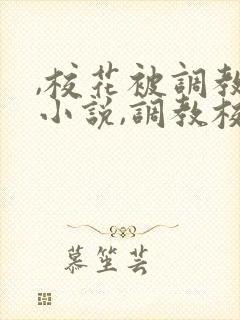 ,校花被調教
小説,調教校
慕笙芸